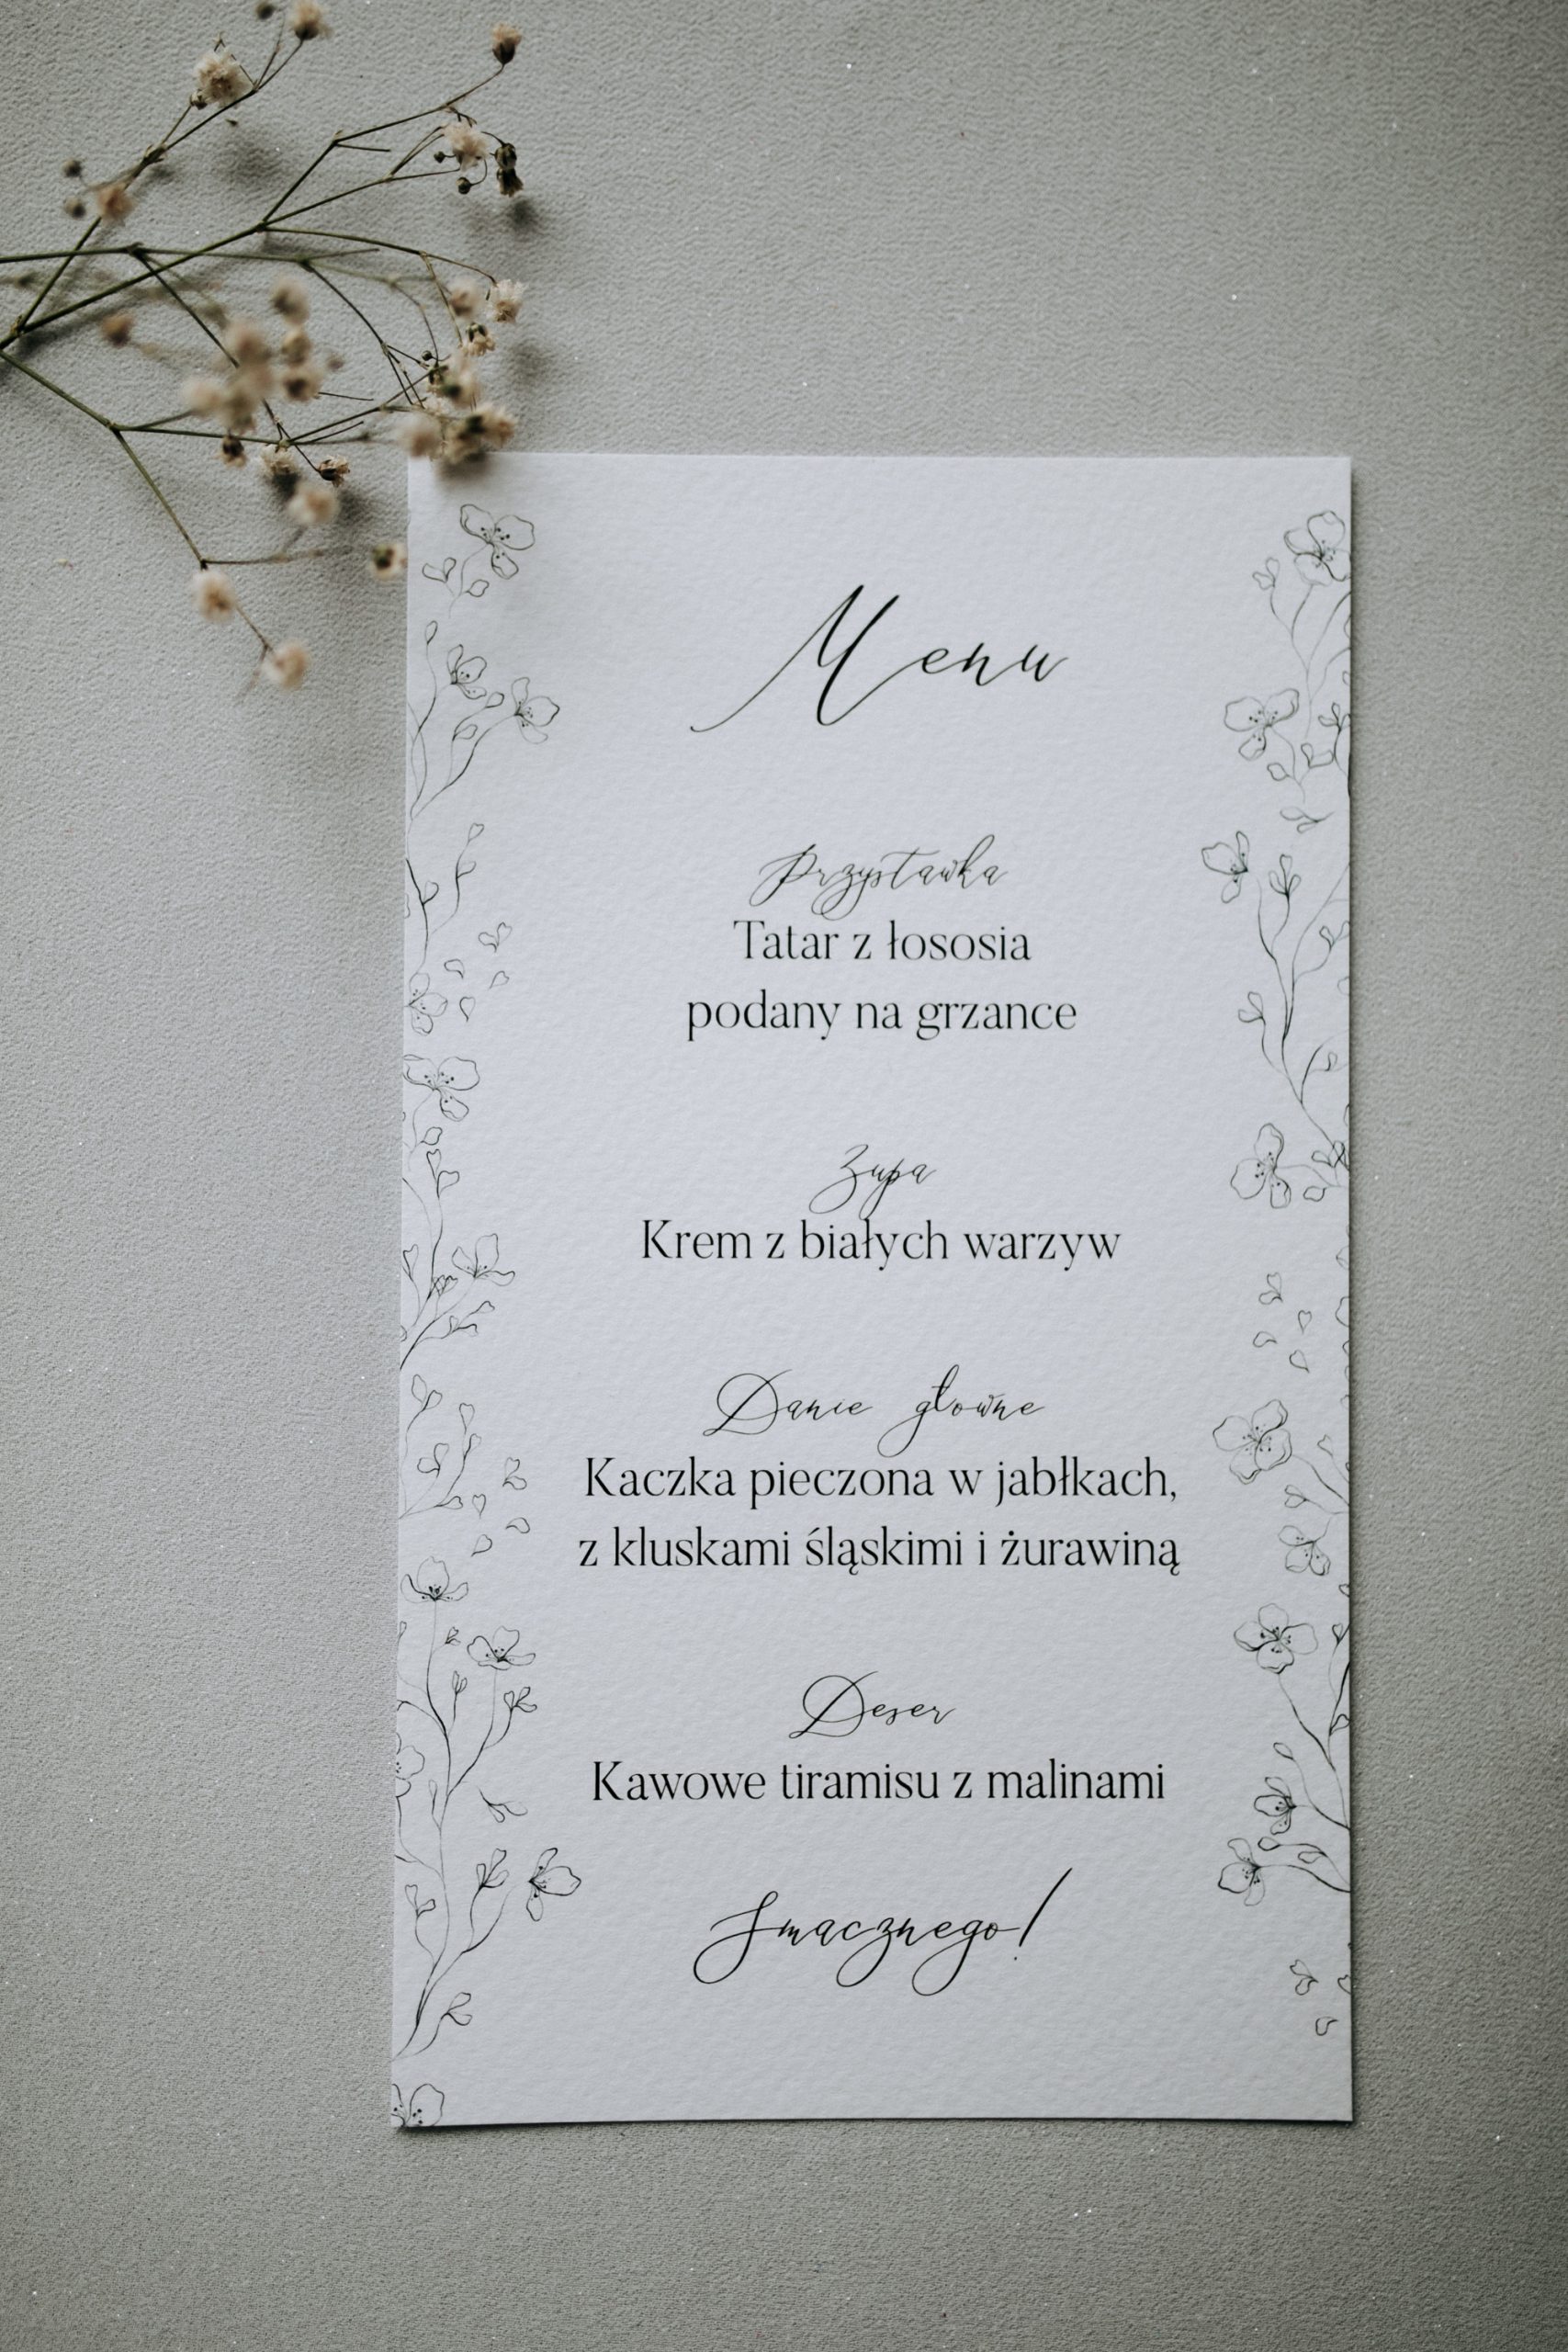 Menu
Przystawka
Tatar z łososia
podany na grzance
Zupa
Krem z białych warzyw
Danie główne
Kaczka pieczona w jabłkach,
z kluskami śląskimi i żurawiną
Deser
Kawowe tiramisu z malinami
Smacznego!